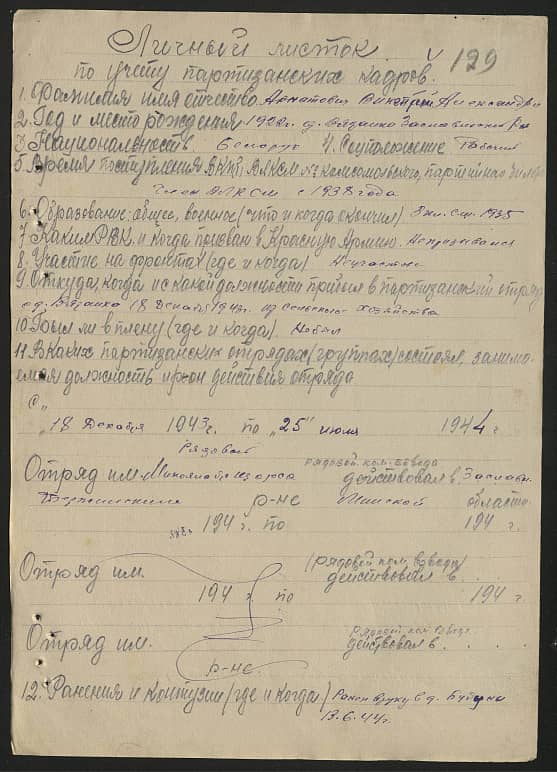 Личный листок
129
по учету партизанских кадров.
1. Фамилия имя отчество Виктор Александр
2. Год и место рождения 1922г. д.
3. Национальность Белорус 4. Соцположение Рабочий
5. Время поступления ВКП/б/, ВЛКСМ, № комсомольского, партийного билета
Член ВЛКСМ с 1938 года
6. Образование: общее, военное (что и когда окончил) 8 кл. 1935
7. Каким РВК и когда призван в Красную Армию. Не призывался
8. Участие на фронтах (где и когда) Не участв.
9. Откуда, когда и с какой должности пришел в партизанский отряд
д. 18 Декабря 1943г. из сельского хозяйства
10. Был ли в плену (где и когда). Не был
11. В каких партизанских отрядах (группах) состоял, занима-
емая должность и р-он действия отряда
С "
"18 Декабря 1943г. по "25" июля 1944г
Рядовой
рядовой ком. взвода
Отряд им. действовал в Заславь
р-не Минской области
194 г. по 194 г
(рядовой ком, взвода)
Отряд им. действовал в . . .
194 г по 194 г.
рядовой ком взвода
Отряд им. действовал в . . . .
р-не.
12. Ранения и контузии (где и когда) Ранен в руку в д.
13.6.44г.